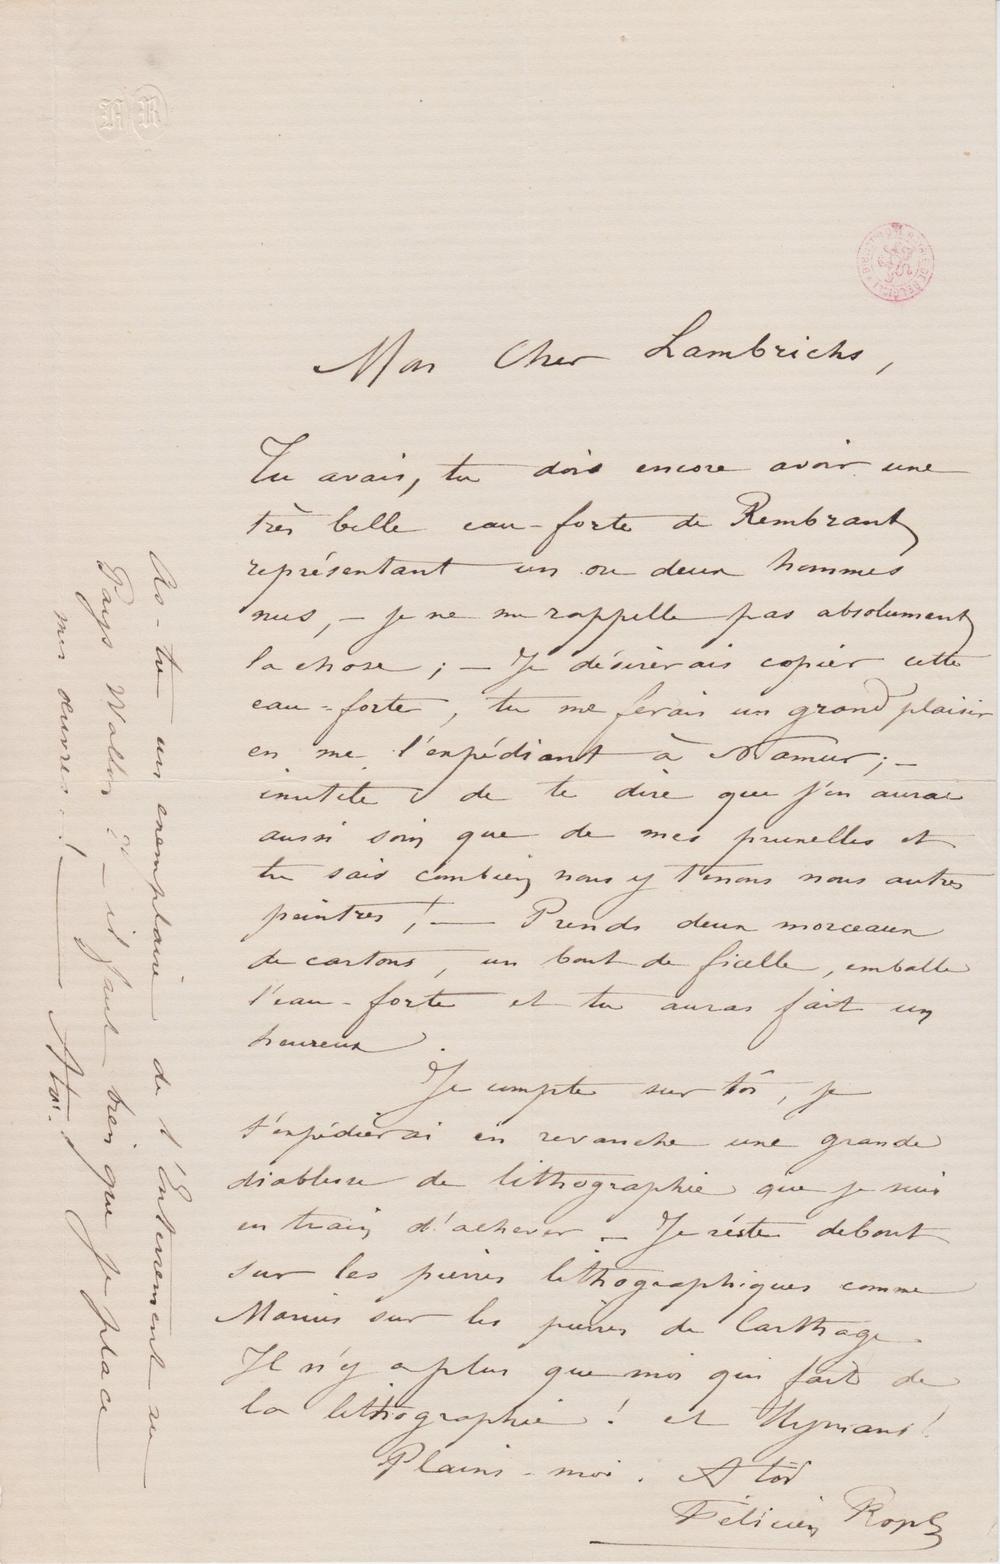 Mon Cher Lambrichs,
Tu avais, tu dois encore avoir une
très belle eau-forte de Rembrant
représentant un ou deux hommes
nus, – je ne me rappelle pas absolument
la chose ; – Je désirerais copier cette
eau-forte, tu me ferais un grand plaisir
en me l'expédiant à Namur ; –
inutile de te dire que j'en aurai
aussi soin que de mes prunelles et
tu sais combien nous y tenons nous autres
peintres ! — Prends deux morceaux
de cartons, un bout de ficelle, emballe
l'eau-forte et tu auras fait un
heureux.
Je compte sur toi, je
t'expédierai en revanche une grande
diablesse de lithographie que je suis
en train d'achever – Je reste debout
sur les pierres lithographiques comme
Marius sur les pierres de Carthage.
Il n'y a plus que moi qui fait de
la lithographie ! et Hymans !
Plains-moi. A toi
Félicien Rops
As-tu un exemplaire de l'Enterrement au
Pays Wallon ? – il faut bien que je place
mes œuvres..! — A toi.